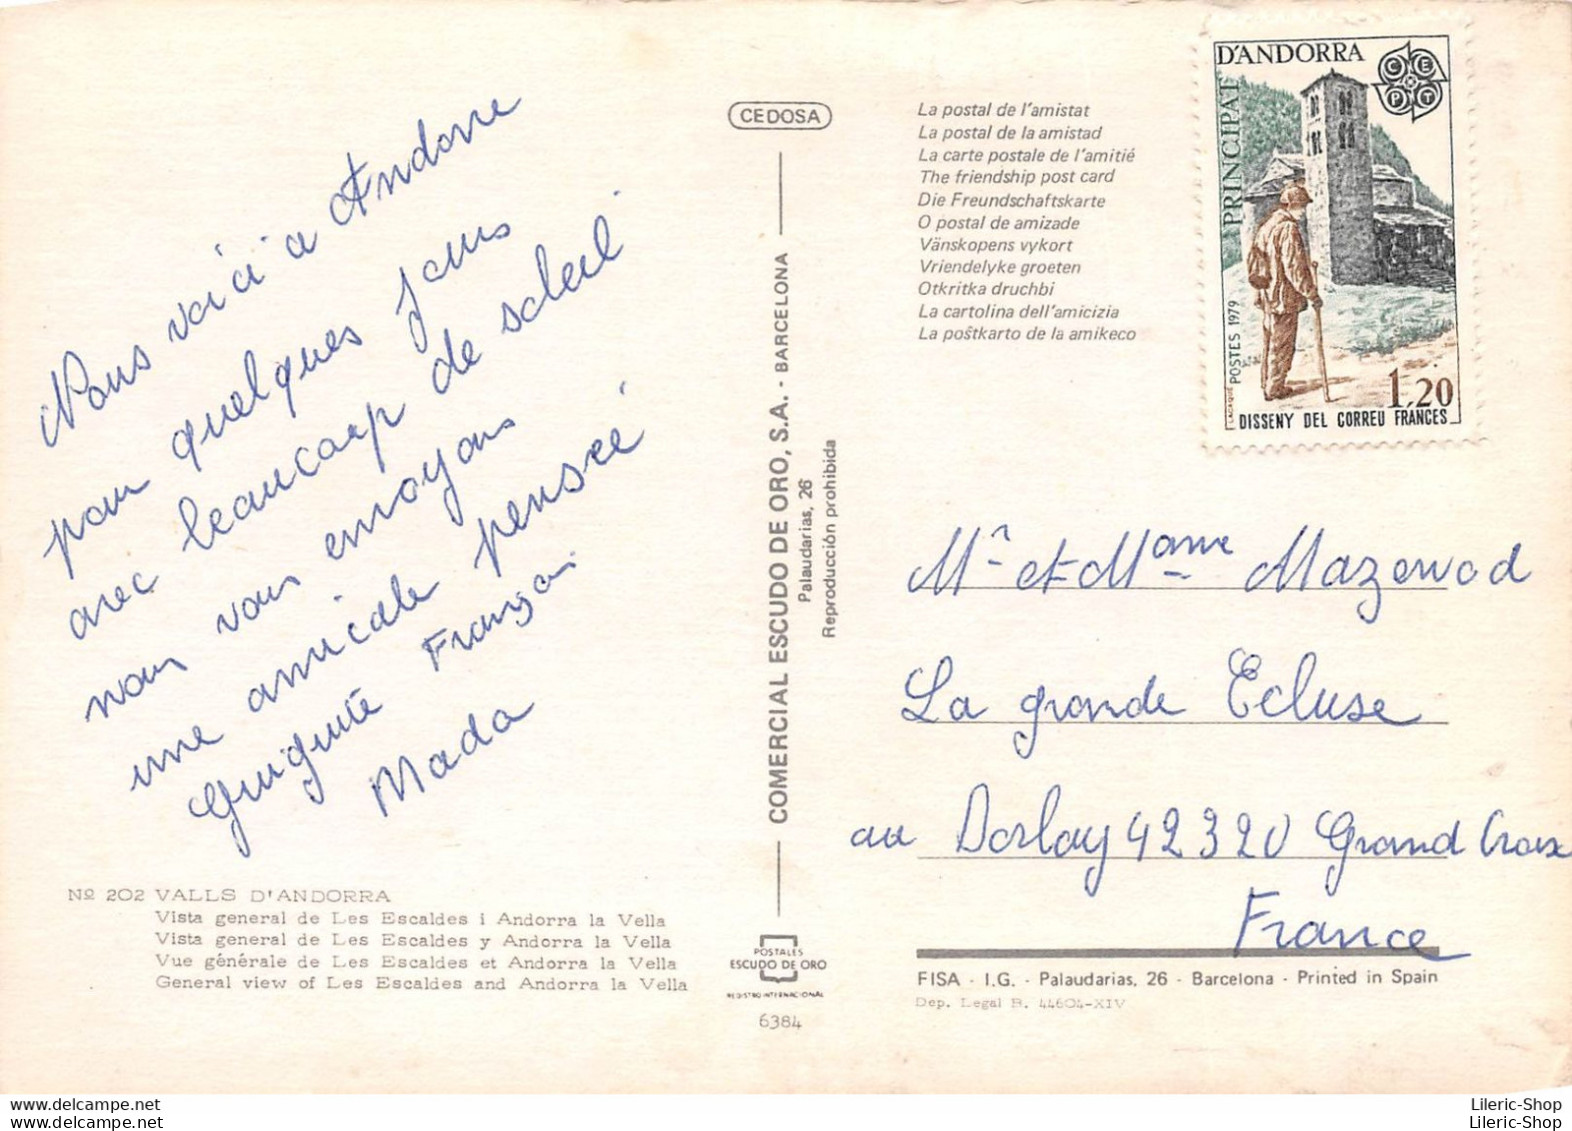 Nous voici à Andorre
pour quelques jours
avec beaucoup de soleil
nous vous envoyons
une amicale pensée
François
Mada
Nº 202 VALLS D'ANDORRA
Vista general de Les Escaldes i Andorra la Vella
Vista general de Les Escaldes y Andorra la Vella
Vue générale de Les Escaldes et Andorra la Vella
General view of Les Escaldes and Andorra la Vella
CEDOSA
COMERCIAL ESCUDO DE ORO, S.A. - BARCELONA
Palaudarias, 26
Reproducción prohibida
POSTALES
ESCUDO DE ORO
REGISTRO INTERNACIONAL
6384
La postal de l'amistat
La postal de la amistad
La carte postale de l'amitié
The friendship post card
Die Freundschaftskarte
O postal de amizade
Vänskopens vykort
Vriendelyke groeten
Otkritka druchbi
La cartolina dell'amicizia
La poŝtkarto de la amikeco
PRINCIPAT D'ANDORRA
CEPT
POSTES 1979
1,20
DISSENY DEL CORREU FRANCES
Mr et Mame
La grande Ecluse
au Dorlay 42320 Grand Croix
France
FISA - I.G. - Palaudarias, 26 - Barcelona - Printed in Spain
Dep. Legal B. 44604-XIV
Lileric-Shop
Lileric-Shop
Lileric-Shop
Lileric-Shop